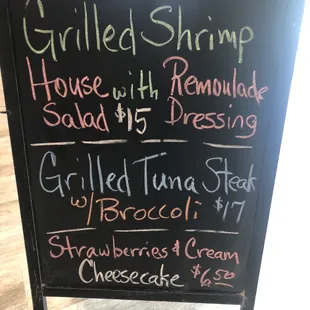 Grilled Shrimp
House with Remoulade
Salad $15 Dressing
Grilled Tuna Steak
w/Broccoli $17
Strawberries & Cream
Cheesecake $6.50